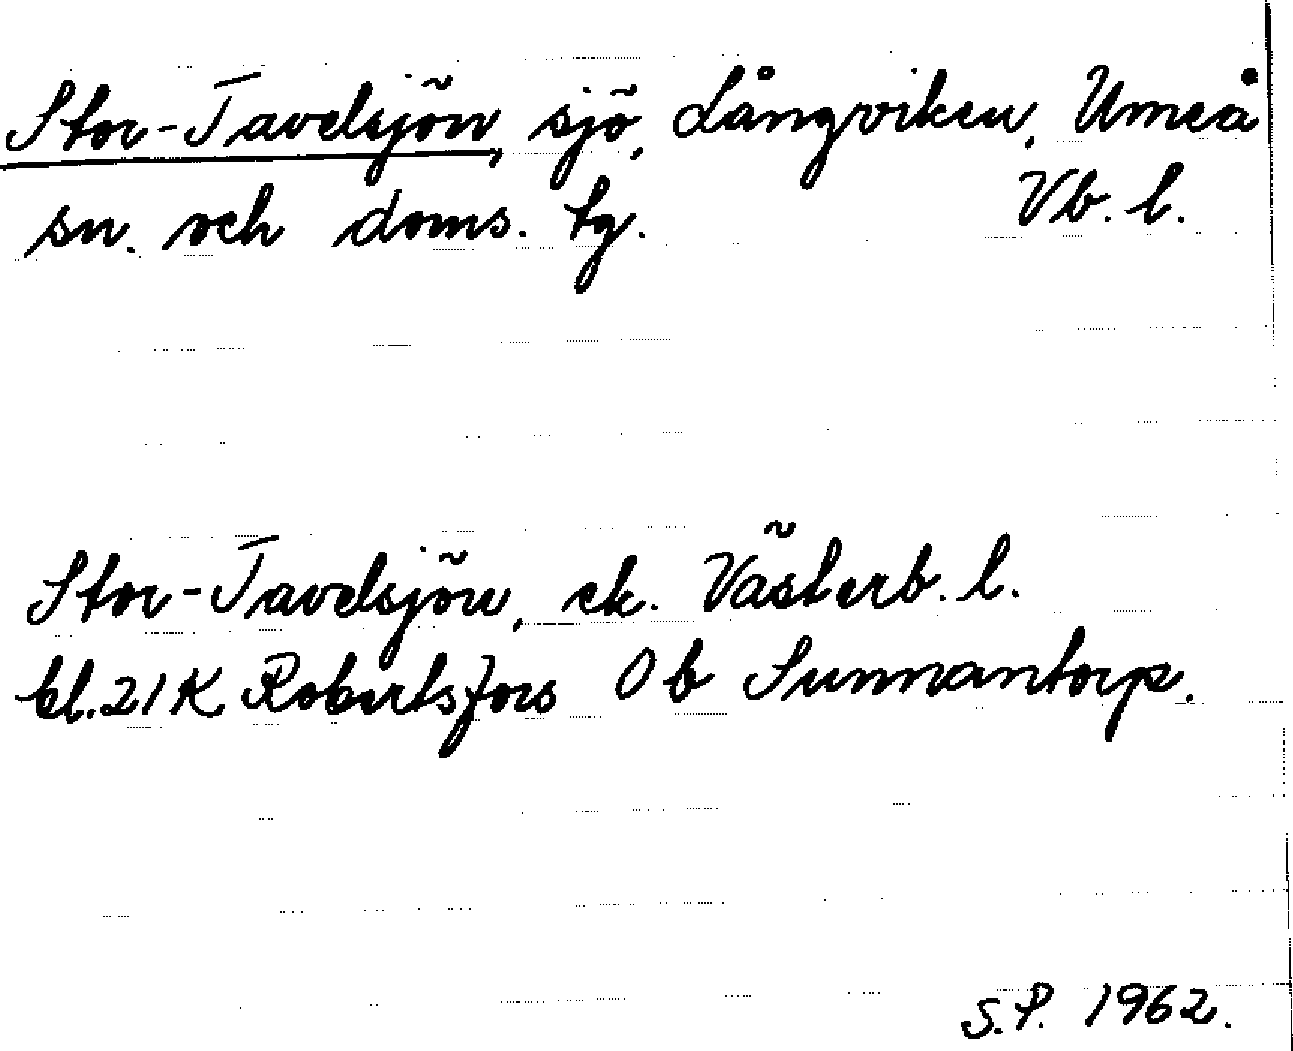 Stor-Tavelsjön, sjö, Långviken, Umeå
sn. och doms. tg. Vb. l.
Stor-Tavelsjön, ek. Västerb. l.
bl. 21 K Robertsfors 0 b Sunnantorp.
S.P. 1962.